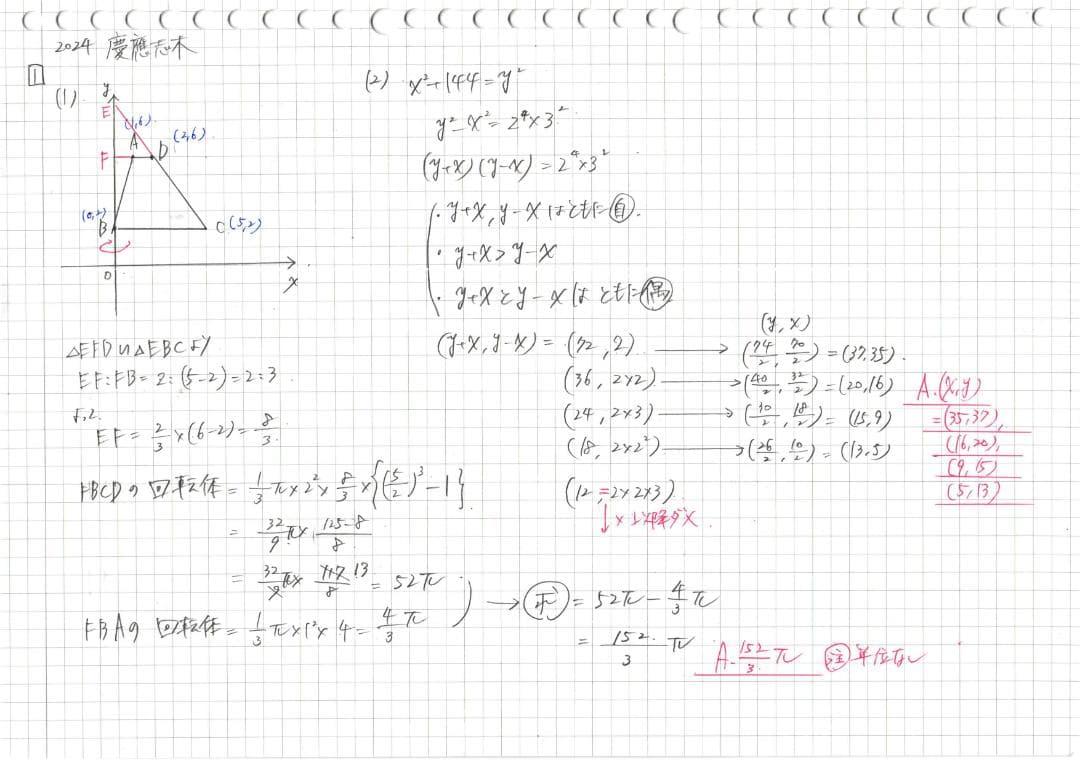 2024 慶應志木
1
(1)
y
E
(1,6)
A
(2,6)
F
D
(0,2)
B
C(5,2)
O
x
△EFD∽△EBCより
EF:FB=2:(5-2)=2:3
よって
EF=2/3×(6-2)=8/3
FBCDの回転体=1/3π×2²×8/3×{(5/2)³-1}
=32/9π×(125-8)/8
=32/9π×117/8=52π
13
FBAの回転体=1/3π×1²×4=4/3π
→(求)=52π-4/3π
=152/3π
A.152/3π
(注)単位なし
(2) x²+144=y²
y²-x²=2⁴×3²
(y+x)(y-x)=2⁴×3²
・y+x, y-xはともに(自).
・y+x>y-x
・y+xとy-xはともに(偶)
(y,x)
(y+x,y-x)=(72,2)→(74/2,70/2)=(37,35).
(36,2×2)→(40/2,32/2)=(20,16)
(24,2×3)→(30/2,18/2)=(15,9)
(18,2×2²)→(26/2,10/2)=(13,5)
(12,2×2×3)
↓×以降ダメ
A.(x,y)
=(35,37),
(16,20),
(9,15)
(5,13)